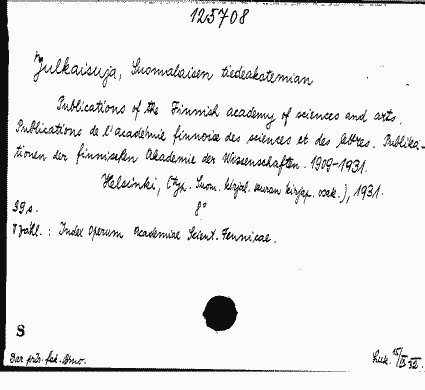 125708
Julkaisuja, Suomalaisen tiedeakatemian
Publications of the Finnish academy of sciences and arts.
Publications de l'académie finnoise des sciences et des lettres. Publika-
tionen der finnischen Akademie der Wissenschaften. 1909-1931.
Helsinki, (typ. Suom. kirjal. seuran kirjap. osak.), 1931.
39 s. 8°
V záhl.: Index Operum Academiae Scient. Fennicae.
S
Dar práv. fak. Brno.
Luk. 15/IX 52.